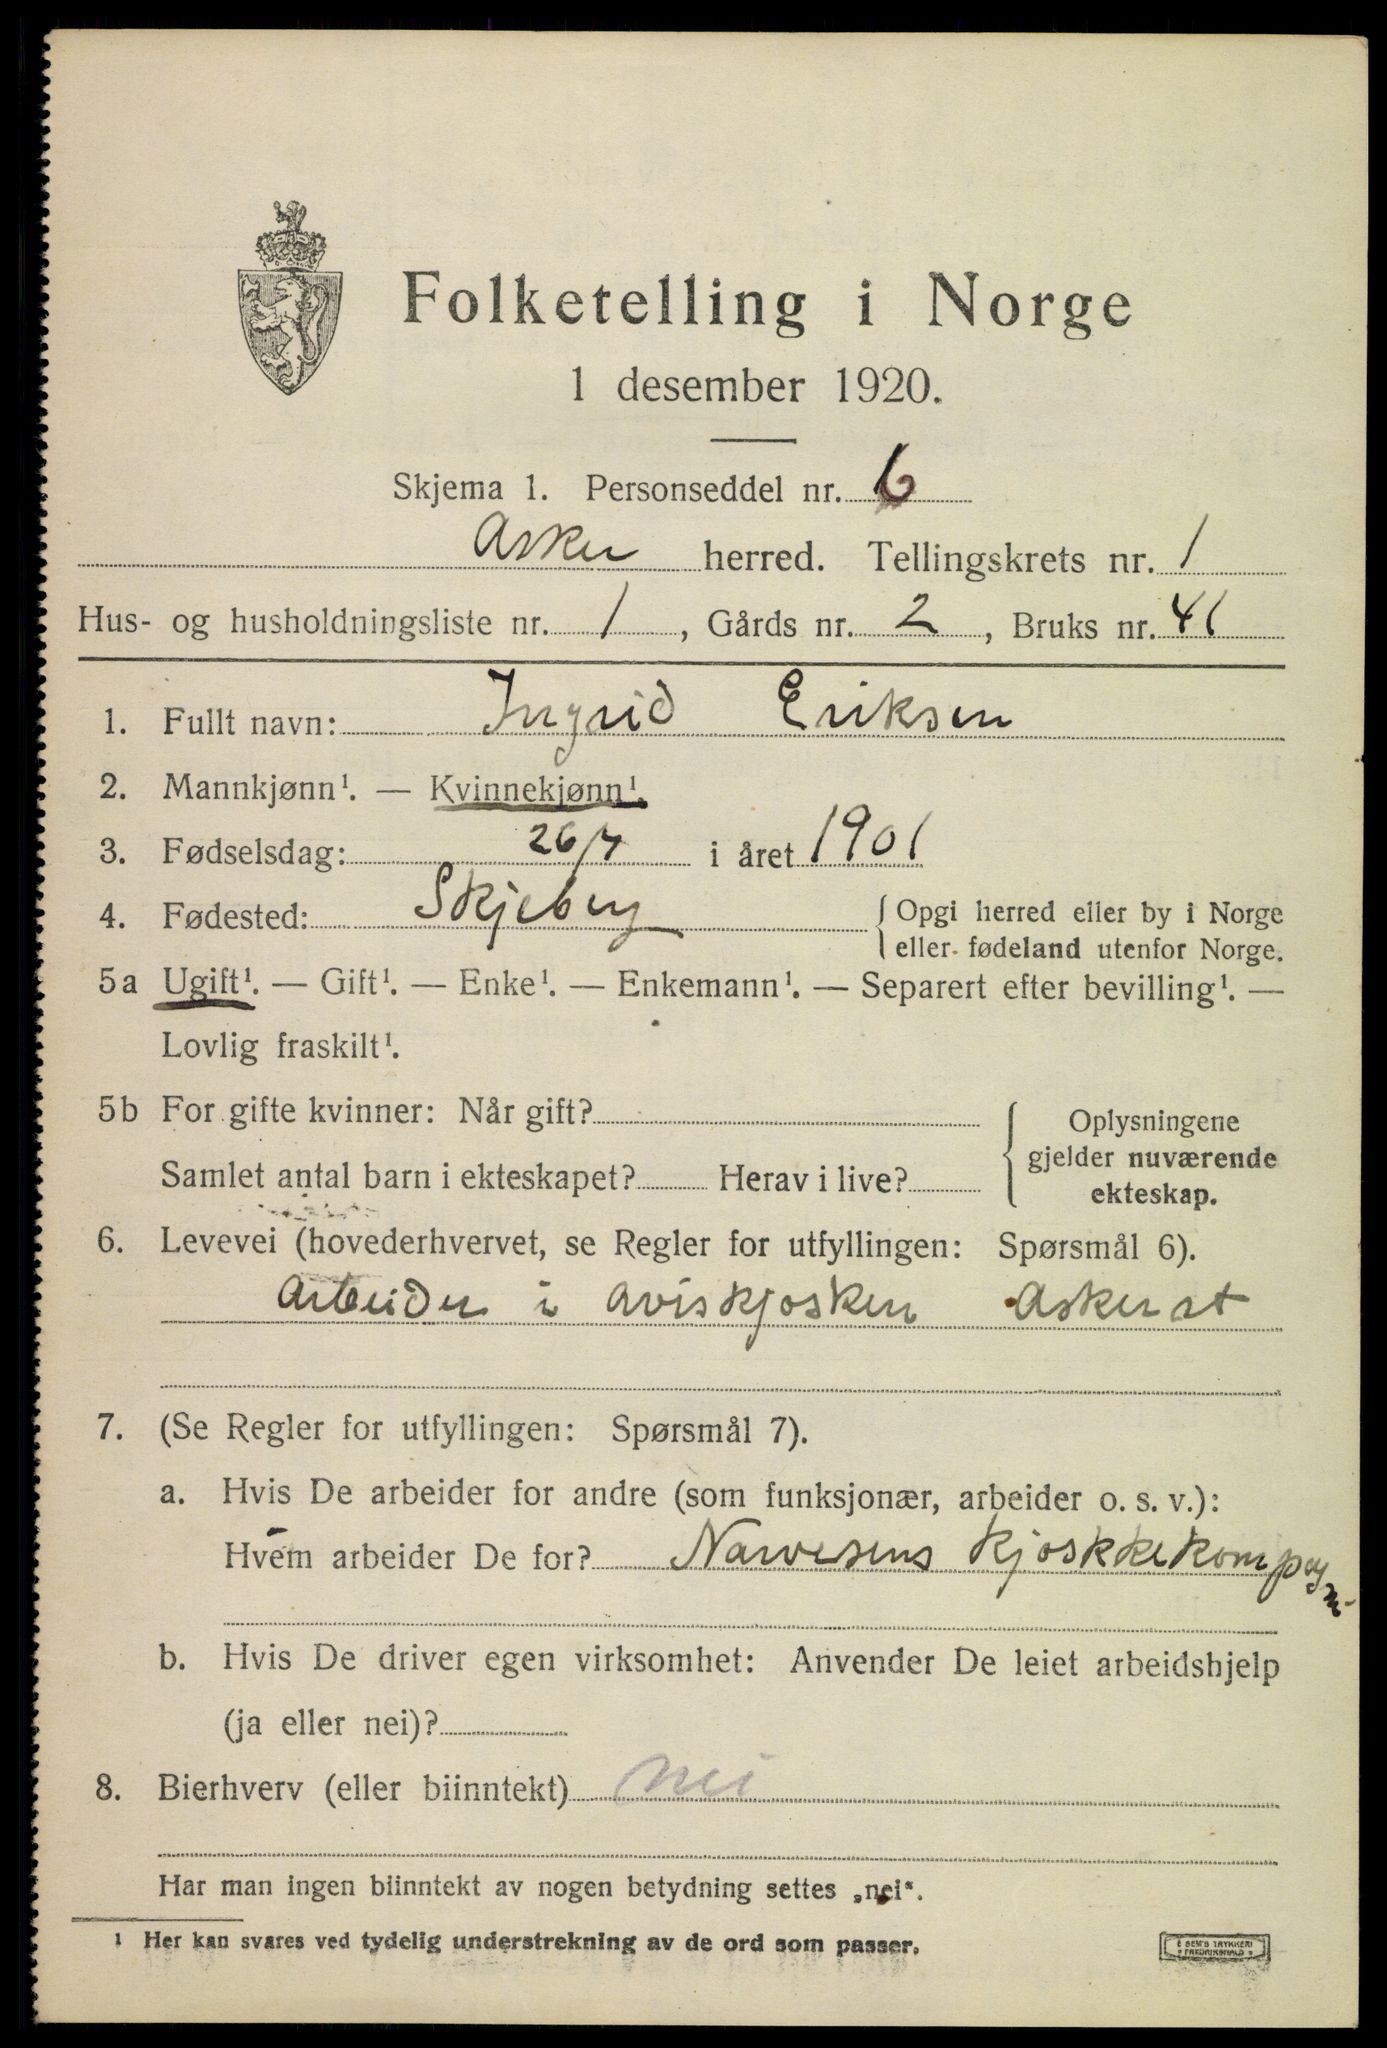 Folketelling i Norge
1 desember 1920.
Skjema 1. Personseddel nr. 6
Asker herred. Tellingskrets nr. 1
Hus- og husholdningsliste nr. 1, Gårds nr. 2, Bruks nr. 41
1. Fullt navn: Ingrid Eriksen
2. Mannkjønn¹. — Kvinnekjønn¹.
3. Fødselsdag: 26/7 i året 1901
4. Fødested: Skjeberg { Opgi herred eller by i Norge
eller fødeland utenfor Norge.
5a Ugift¹. — Gift¹. — Enke¹. — Enkemann¹. — Separert efter bevilling¹. —
Lovlig fraskilt¹.
5b For gifte kvinner: Når gift? { Oplysningene
gjelder nuværende
Samlet antal barn i ekteskapet? Herav i live? ekteskap.
6. Levevei (hovederhvervet, se Regler for utfyllingen: Spørsmål 6).
Arbeider i aviskjosken Asker st
7. (Se Regler for utfyllingen: Spørsmål 7).
a. Hvis De arbeider for andre (som funksjonær, arbeider o. s. v.):
Hvem arbeider De for? Narvesens kjoskkekompagni
b. Hvis De driver egen virksomhet: Anvender De leiet arbeidshjelp
(ja eller nei)?
8. Bierhverv (eller biinntekt) nei
Har man ingen biinntekt av nogen betydning settes „nei“.
1 Her kan svares ved tydelig understrekning av de ord som passer.
E SEM'S TRYKKERI
FREDRIKSHALD